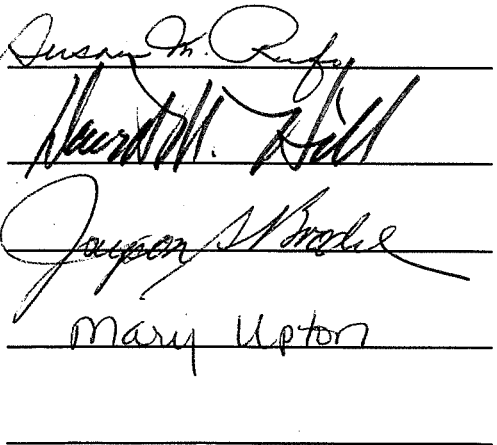 Susan M. Rufo
David M. Hill
Jayson S Brodie
Mary Upton